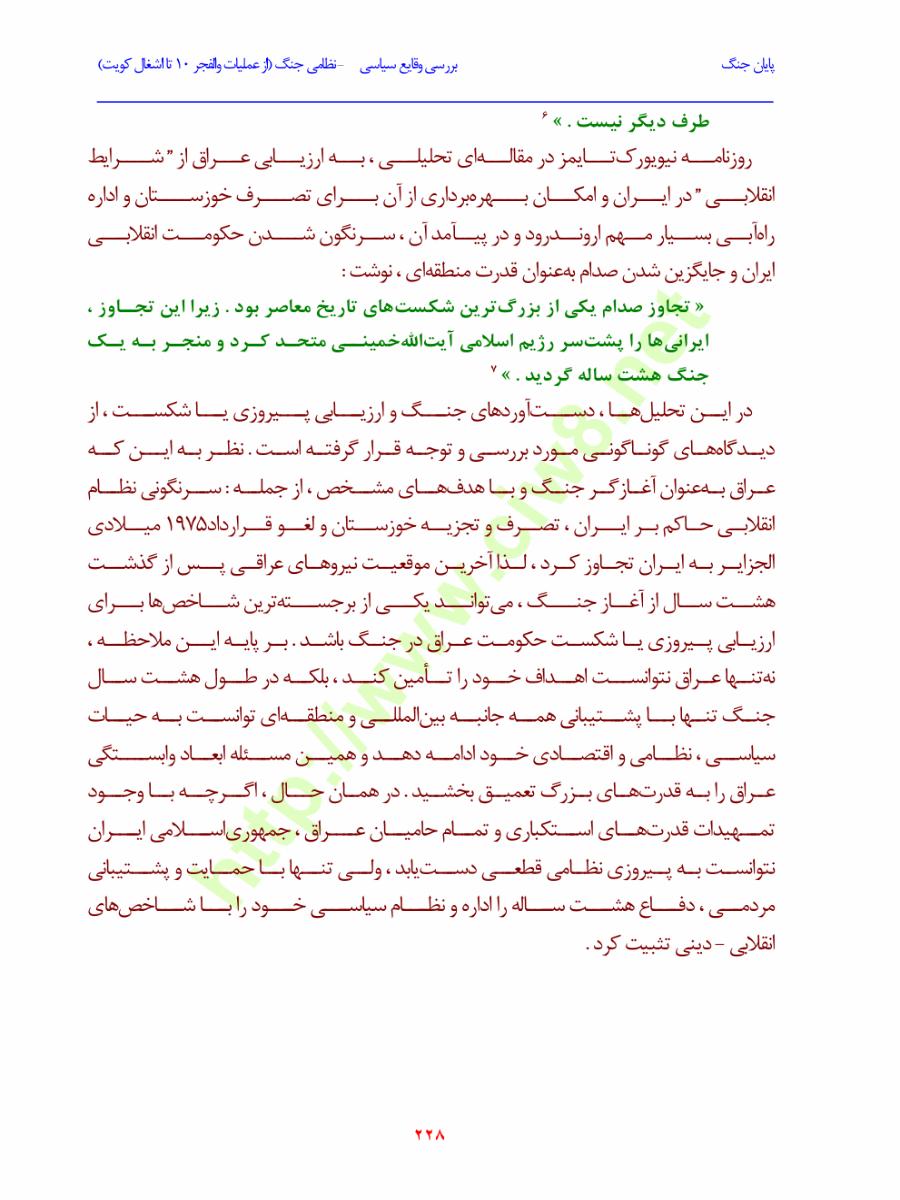 پایان جنگ بررسی وقایع سیاسی -نظامی جنگ (از عملیات والفجر ۱۰ تا اشغال کویت)
طرف دیگر نیست . » ۶
روزنامه نیویورک‌تایمز در مقاله‌ای تحلیلی ، به ارزیابی عراق از ” شرایط
انقلابی ” در ایران و امکان بهره‌برداری از آن برای تصرف خوزستان و اداره
راه‌آبی بسیار مهم اروندرود و در پیامد آن ، سرنگون شدن حکومت انقلابی
ایران و جایگزین شدن صدام به‌عنوان قدرت منطقه‌ای ، نوشت :
« تجاوز صدام یکی از بزرگ‌ترین شکست‌های تاریخ معاصر بود . زیرا این تجاوز ،
ایرانی‌ها را پشت‌سر رژیم اسلامی آیت‌الله‌خمینی متحد کرد و منجر به یک
جنگ هشت ساله گردید . » ۷
در این تحلیل‌ها ، دست‌آوردهای جنگ و ارزیابی پیروزی یا شکست ، از
دیدگاه‌های گوناگونی مورد بررسی و توجه قرار گرفته است . نظر به این که
عراق به‌عنوان آغازگر جنگ و با هدف‌های مشخص ، از جمله : سرنگونی نظام
انقلابی حاکم بر ایران ، تصرف و تجزیه خوزستان و لغو قرارداد۱۹۷۵ میلادی
الجزایر به ایران تجاوز کرد ، لذا آخرین موقعیت نیروهای عراقی پس از گذشت
هشت سال از آغاز جنگ ، می‌تواند یکی از برجسته‌ترین شاخص‌ها برای
ارزیابی پیروزی یا شکست حکومت عراق در جنگ باشد . بر پایه این ملاحظه ،
نه‌تنها عراق نتوانست اهداف خود را تأمین کند ، بلکه در طول هشت سال
جنگ تنها با پشتیبانی همه جانبه بین‌المللی و منطقه‌ای توانست به حیات
سیاسی ، نظامی و اقتصادی خود ادامه دهد و همین مسئله ابعاد وابستگی
عراق را به قدرت‌های بزرگ تعمیق بخشید . در همان حال ، اگرچه با وجود
تمهیدات قدرت‌های استکباری و تمام حامیان عراق ، جمهوری‌اسلامی ایران
نتوانست به پیروزی نظامی قطعی دست‌یابد ، ولی تنها با حمایت و پشتیبانی
مردمی ، دفاع هشت ساله را اداره و نظام سیاسی خود را با شاخص‌های
انقلابی – دینی تثبیت کرد .
http://www.ciw8.net
۲۲۸